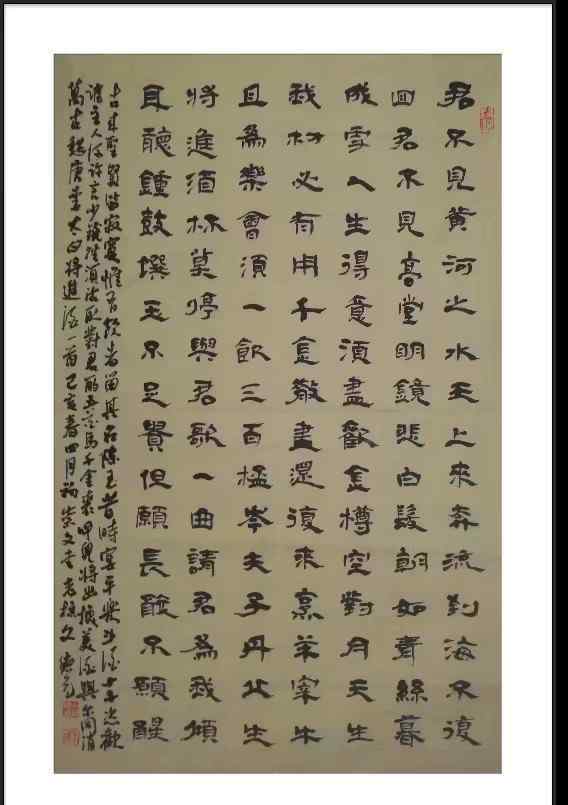 君不見黃河之水天上來奔流到海不復
回君不見高堂明鏡悲白髮朝如青絲暮
成雪人生得意須盡歡金樽空對月天生
我材必有用千金散盡還復來烹羊宰牛
且為樂會須一飲三百杯岑夫子丹丘生
將進酒杯莫停與君歌一曲請君為我傾
耳聽鐘鼓饌玉不足貴但願長醉不願醒
古來聖賢皆寂寞惟有飲者留其名陳王昔時宴平樂斗酒十千恣歡
謔主人何為言少錢徑須沽取對君酌五花馬千金裘呼兒將出換美酒與爾同消
萬古愁唐李太白將進酒一首己亥春四月初